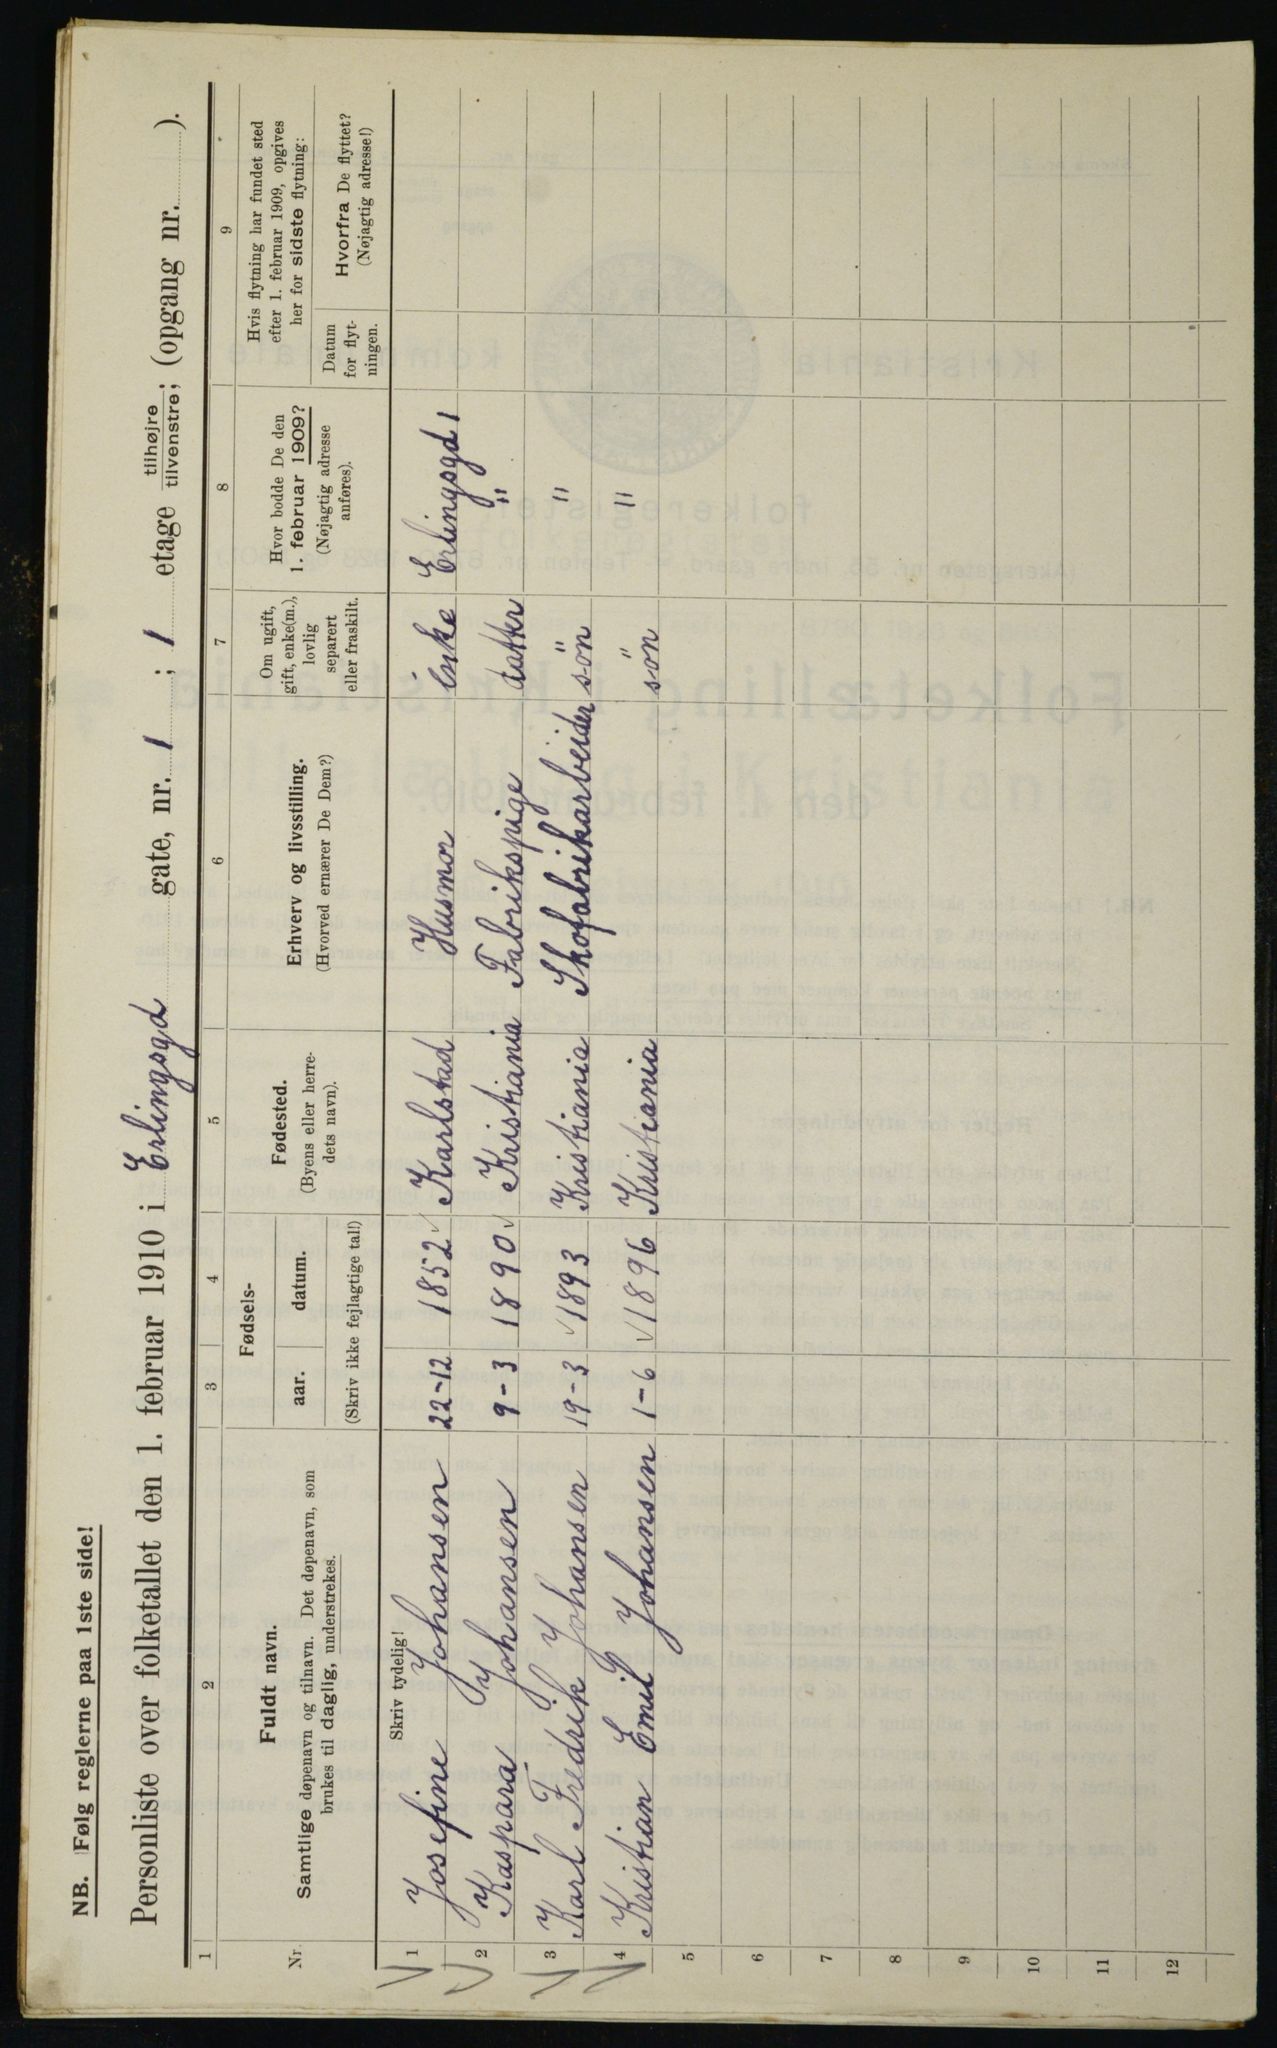 NB. Følg reglerne paa 1ste side!
Personliste over folketallet den 1. februar 1910 i Erlingsgd gate, nr. 1 ; 1 etage tilhøjre tilvenstre; (opgang nr. ).
1 2 3 4 5 6 7 8 9
Nr.
Fuldt navn.
Samtlige døpenavn og tilnavn. Det døpenavn, som
brukes til daglig, understrekes.
Fødsels-
aar. datum.
(Skriv ikke fejlagtige tal!)
Fødested.
(Byens eller herre-
dets navn).
Erhverv og livsstilling.
(Hvorved ernærer De Dem?)
Om ugift,
gift, enke(m.),
lovlig
separert
eller fraskilt.
Hvor bodde De den
1. februar 1909?
(Nøjagtig adresse
anføres).
Hvis flytning har fundet sted
efter 1. februar 1909, opgives
her for sidste flytning:
Datum
for flyt-
ningen.
Hvorfra De flyttet?
(Nøjagtig adresse!)
Skriv tydelig!
1 Josefine Johansen 22-12 1852 Karlstad Husmor Enke Erlingsgd 1
2 Kaspara Johansen 9-3 1890 Kristiania Fabrikspige datter "
3 Karl Fredrik Johansen 19-3 1893 Kristiania Skofabrikarbeider sön "
4 Kristian Emil Johansen 1-6 1896 Kristiania sön "
5
6
7
8
9
10
11
12